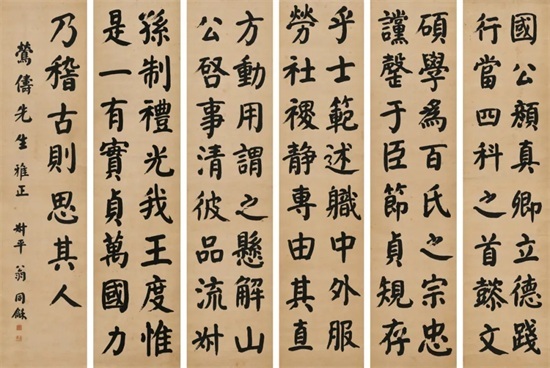 國公顏真卿立德踐
行當四科之首懿文
碩學為百氏之宗忠
讜罄于臣節貞規存
乎士範述職中外服
勞社稷靜專由其直
方動用謂之懸解山
公啓事清彼品流叔
孫制禮光我王度惟
是一有實貞萬國力
乃稽古則思其人
鶯儔先生雅正 叔平翁同龢